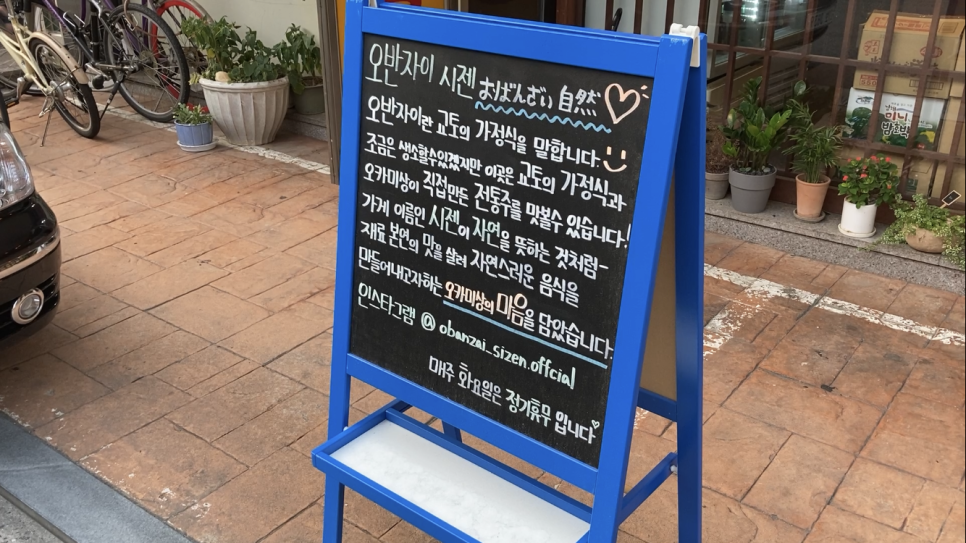 오반자이 시젠 おばんざい 自然
오반자이란 교토의 가정식을 말합니다.
조금은 생소할수있겠지만 이곳은 교토의 가정식과
오카미상이 직접만든 전통주를 맛볼수 있습니다!
가게 이름인 시젠이 자연을 뜻하는 것처럼-
재료 본연의 맛을 살려 자연스러운 음식을
만들어내고자하는 오카미상의 마음을 담았습니다.
인스타그램 @ obanzai_sizen.offcial
매주 화요일은 정기휴무 입니다
미니
밤호박